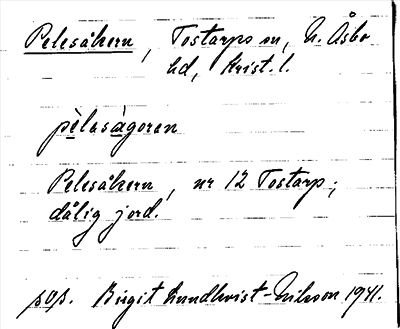 Pelesåkern, Tostarps sn, N. Åsbo
hd, Krist. l.
pèlasågoran
Pelesåkern, nr 12 Tostarp;
dålig jord.
pop. Birgit Lundkvist-Nilsson 1941.